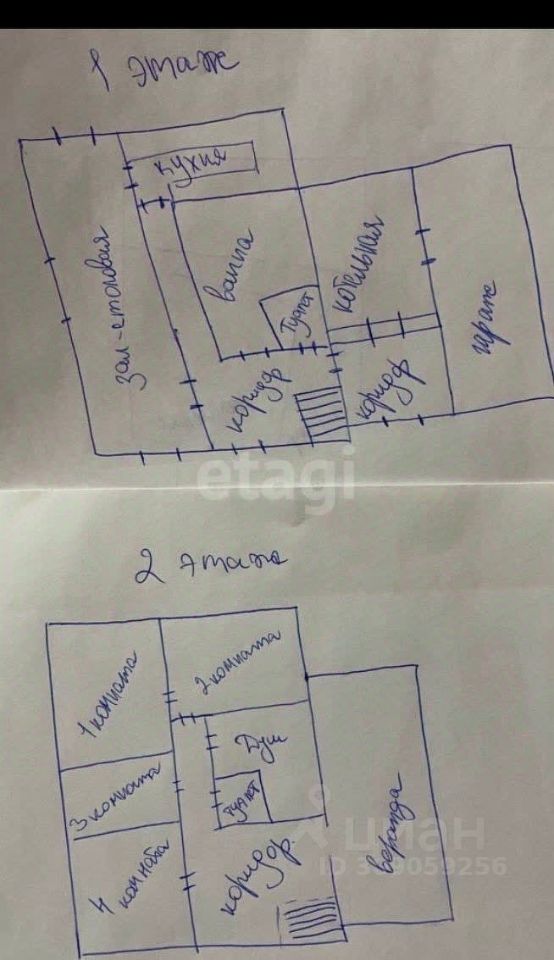 1 этаж
кухня
зал-столовая
ванна
туалет
котельная
гараж
коридор
коридор
etagi
2 этаж
1 комната
2 комната
3 комната
Душ
туалет
4 комната
коридор
веранда
циан